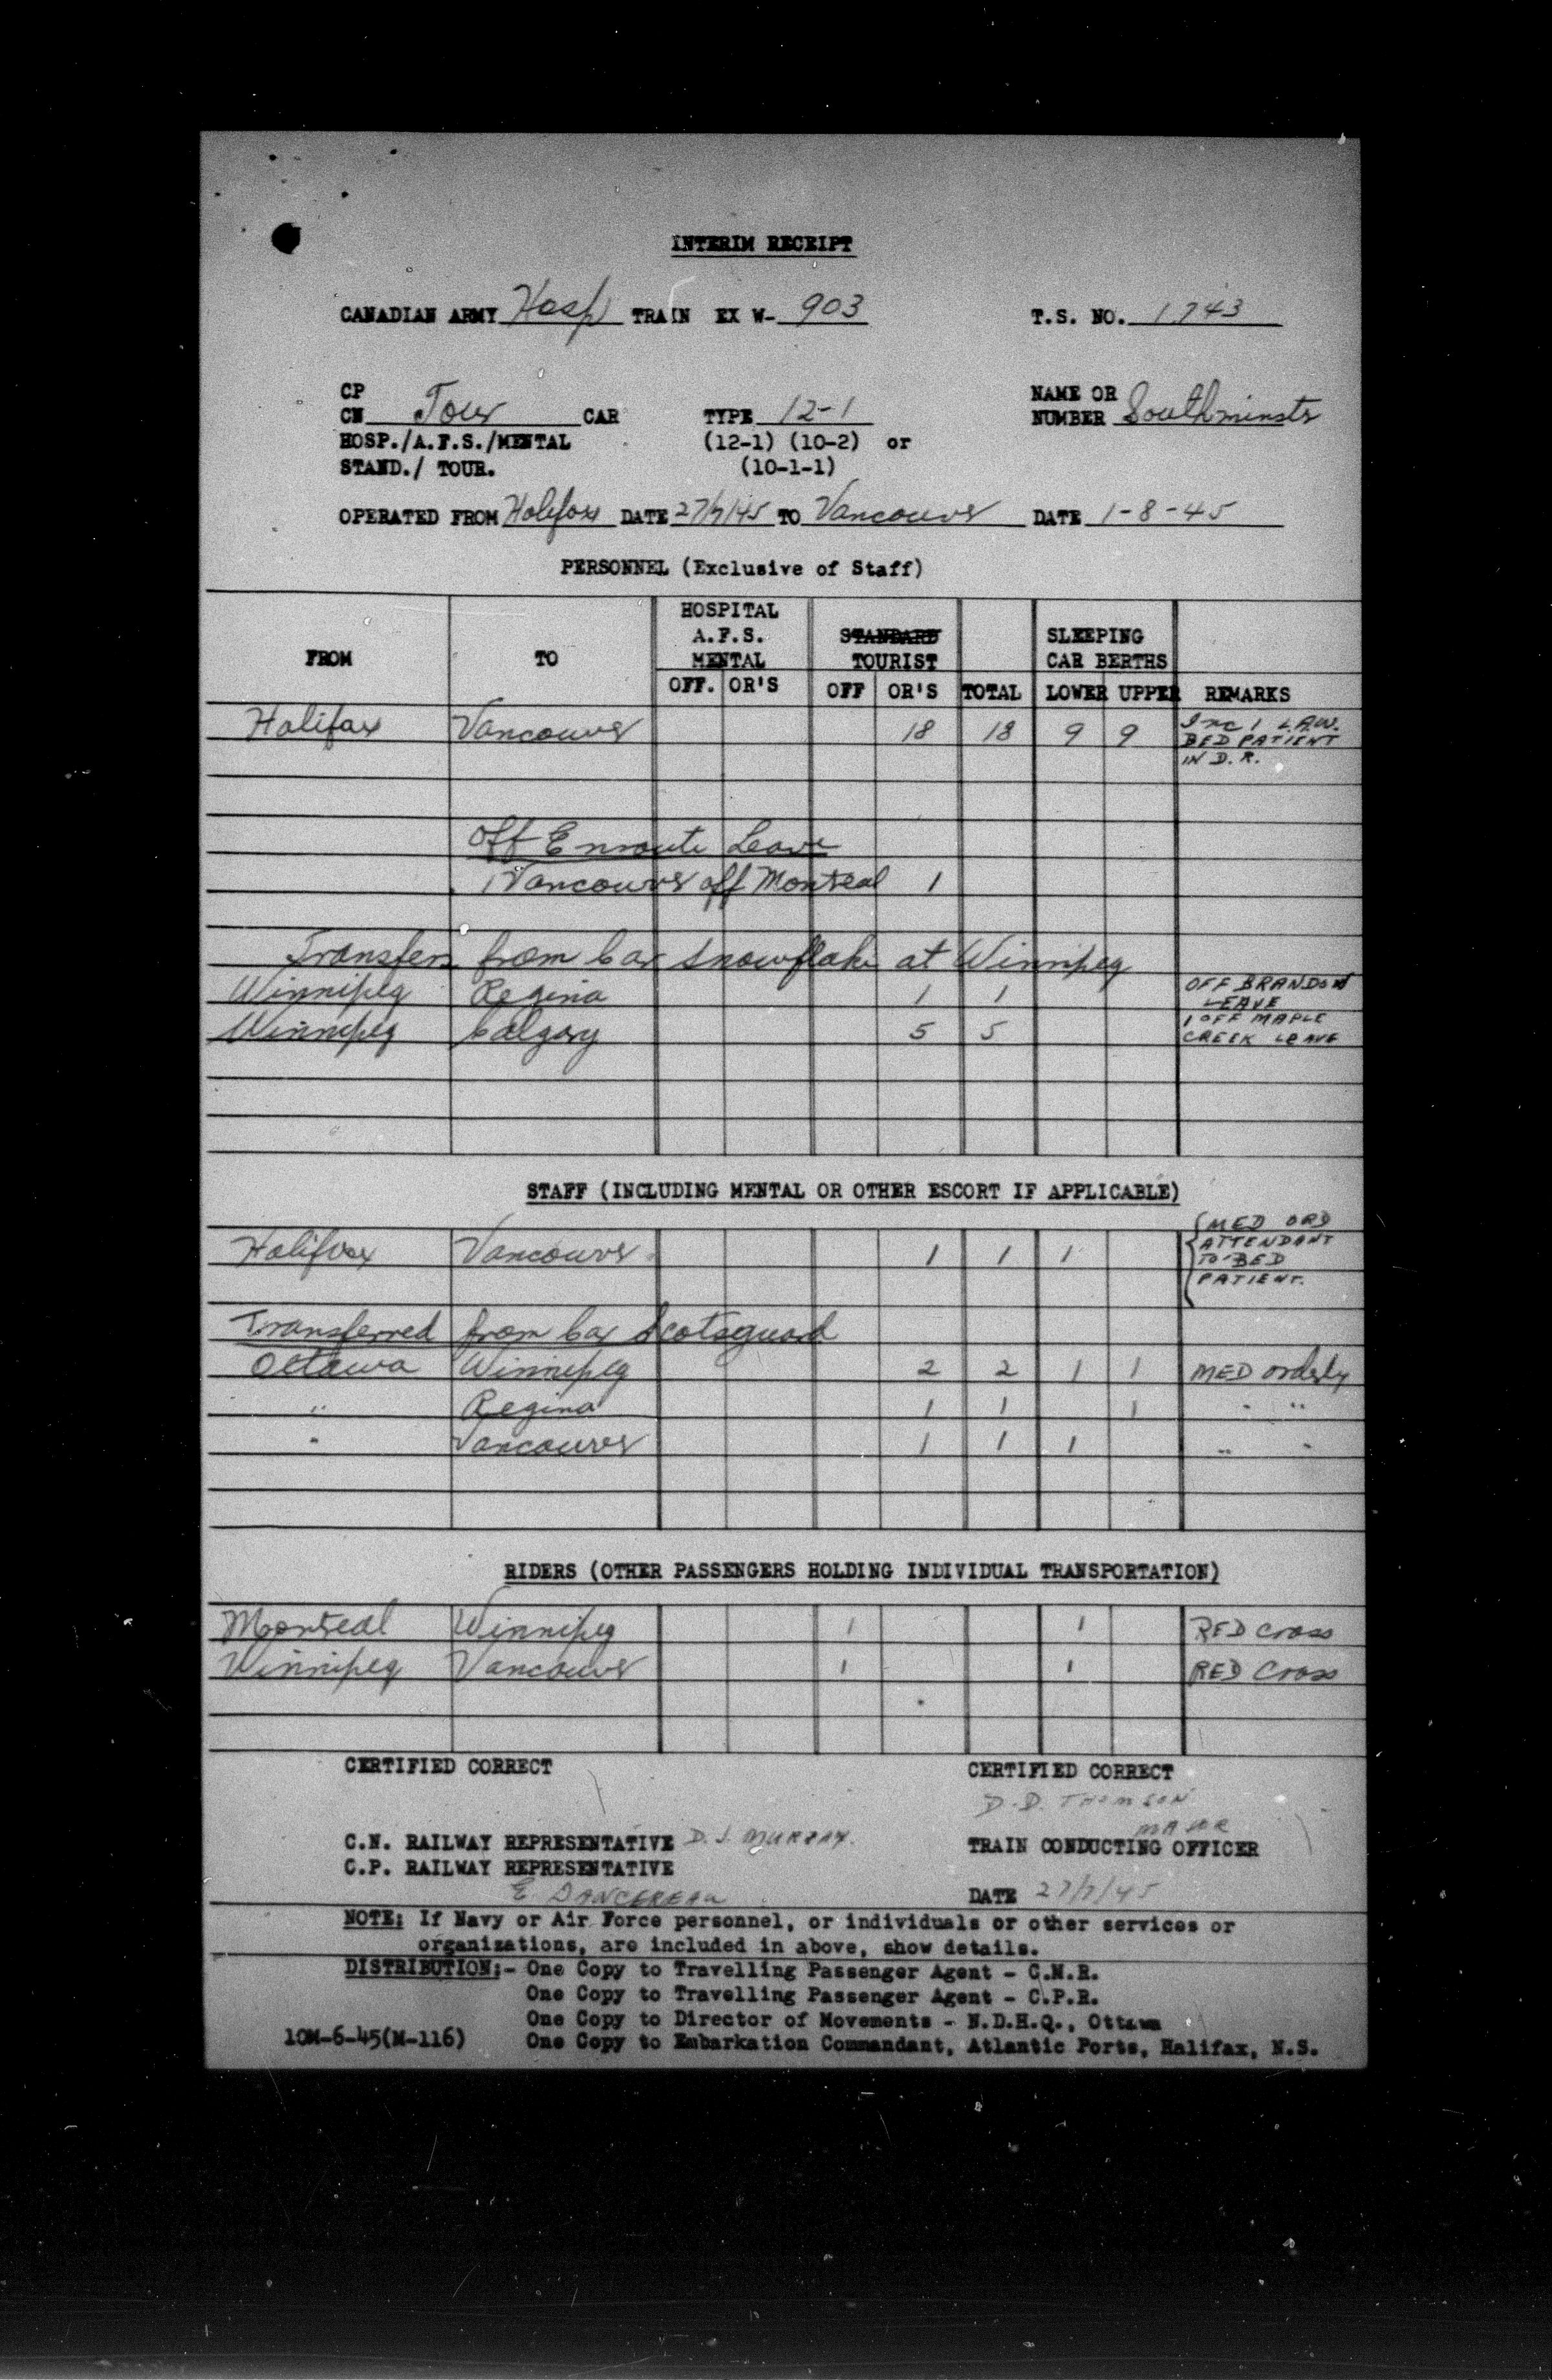 INTERIM RECEIPT
CANADIAN ARMY Hosp TRAIN EX W- 903 T.S. NO. 1743
CP
CN Tour CAR TYPE 12-1 NAME OR NUMBER Southminstr
HOSP./A.F.S./MENTAL (12-1) (10-2) or
STAND./ TOUR. (10-1-1)
OPERATED FROM Halifax DATE 27/7/45 TO Vancouver DATE 1-8-45
PERSONNEL (Exclusive of Staff)
FROM TO HOSPITAL A.F.S. MENTAL STANDARD TOURIST SLEEPING CAR BERTHS
OFF. OR'S OFF OR'S TOTAL LOWER UPPER REMARKS
Halifax Vancouver 18 18 9 9 Inc 1 L.A.W. BED PATIENT IN D.R.
Off Enroute Leave
1 Vancouver off Montreal 1
Transfers from Car Snowflake at Winnipeg
Winnipeg Regina 1 1 OFF BRANDON LEAVE
Winnipeg Calgary 5 5 1 OFF MAPLE CREEK LEAVE
STAFF (INCLUDING MENTAL OR OTHER ESCORT IF APPLICABLE)
Halifax Vancouver 1 1 1 MED ORD ATTENDANT TO BED PATIENT.
Transferred from Car Scotsguard
Ottawa Winnipeg 2 2 1 1 MED orderly
" Regina 1 1 1 " "
" Vancouver 1 1 1 " "
RIDERS (OTHER PASSENGERS HOLDING INDIVIDUAL TRANSPORTATION)
Montreal Winnipeg 1 1 RED Cross
Winnipeg Vancouver 1 1 RED Cross
CERTIFIED CORRECT CERTIFIED CORRECT
D.D. THOMSON
MAJOR
C.N. RAILWAY REPRESENTATIVE D.J. MURRAY. TRAIN CONDUCTING OFFICER
C.P. RAILWAY REPRESENTATIVE
E DANCEREAU DATE 27/7/45
NOTE: If Navy or Air Force personnel, or individuals or other services or
organizations, are included in above, show details.
DISTRIBUTION:- One Copy to Travelling Passenger Agent - C.N.R.
One Copy to Travelling Passenger Agent - C.P.R.
One Copy to Director of Movements - N.D.H.Q., Ottawa
10M-6-45(M-116) One Copy to Embarkation Commandant, Atlantic Ports, Halifax, N.S.